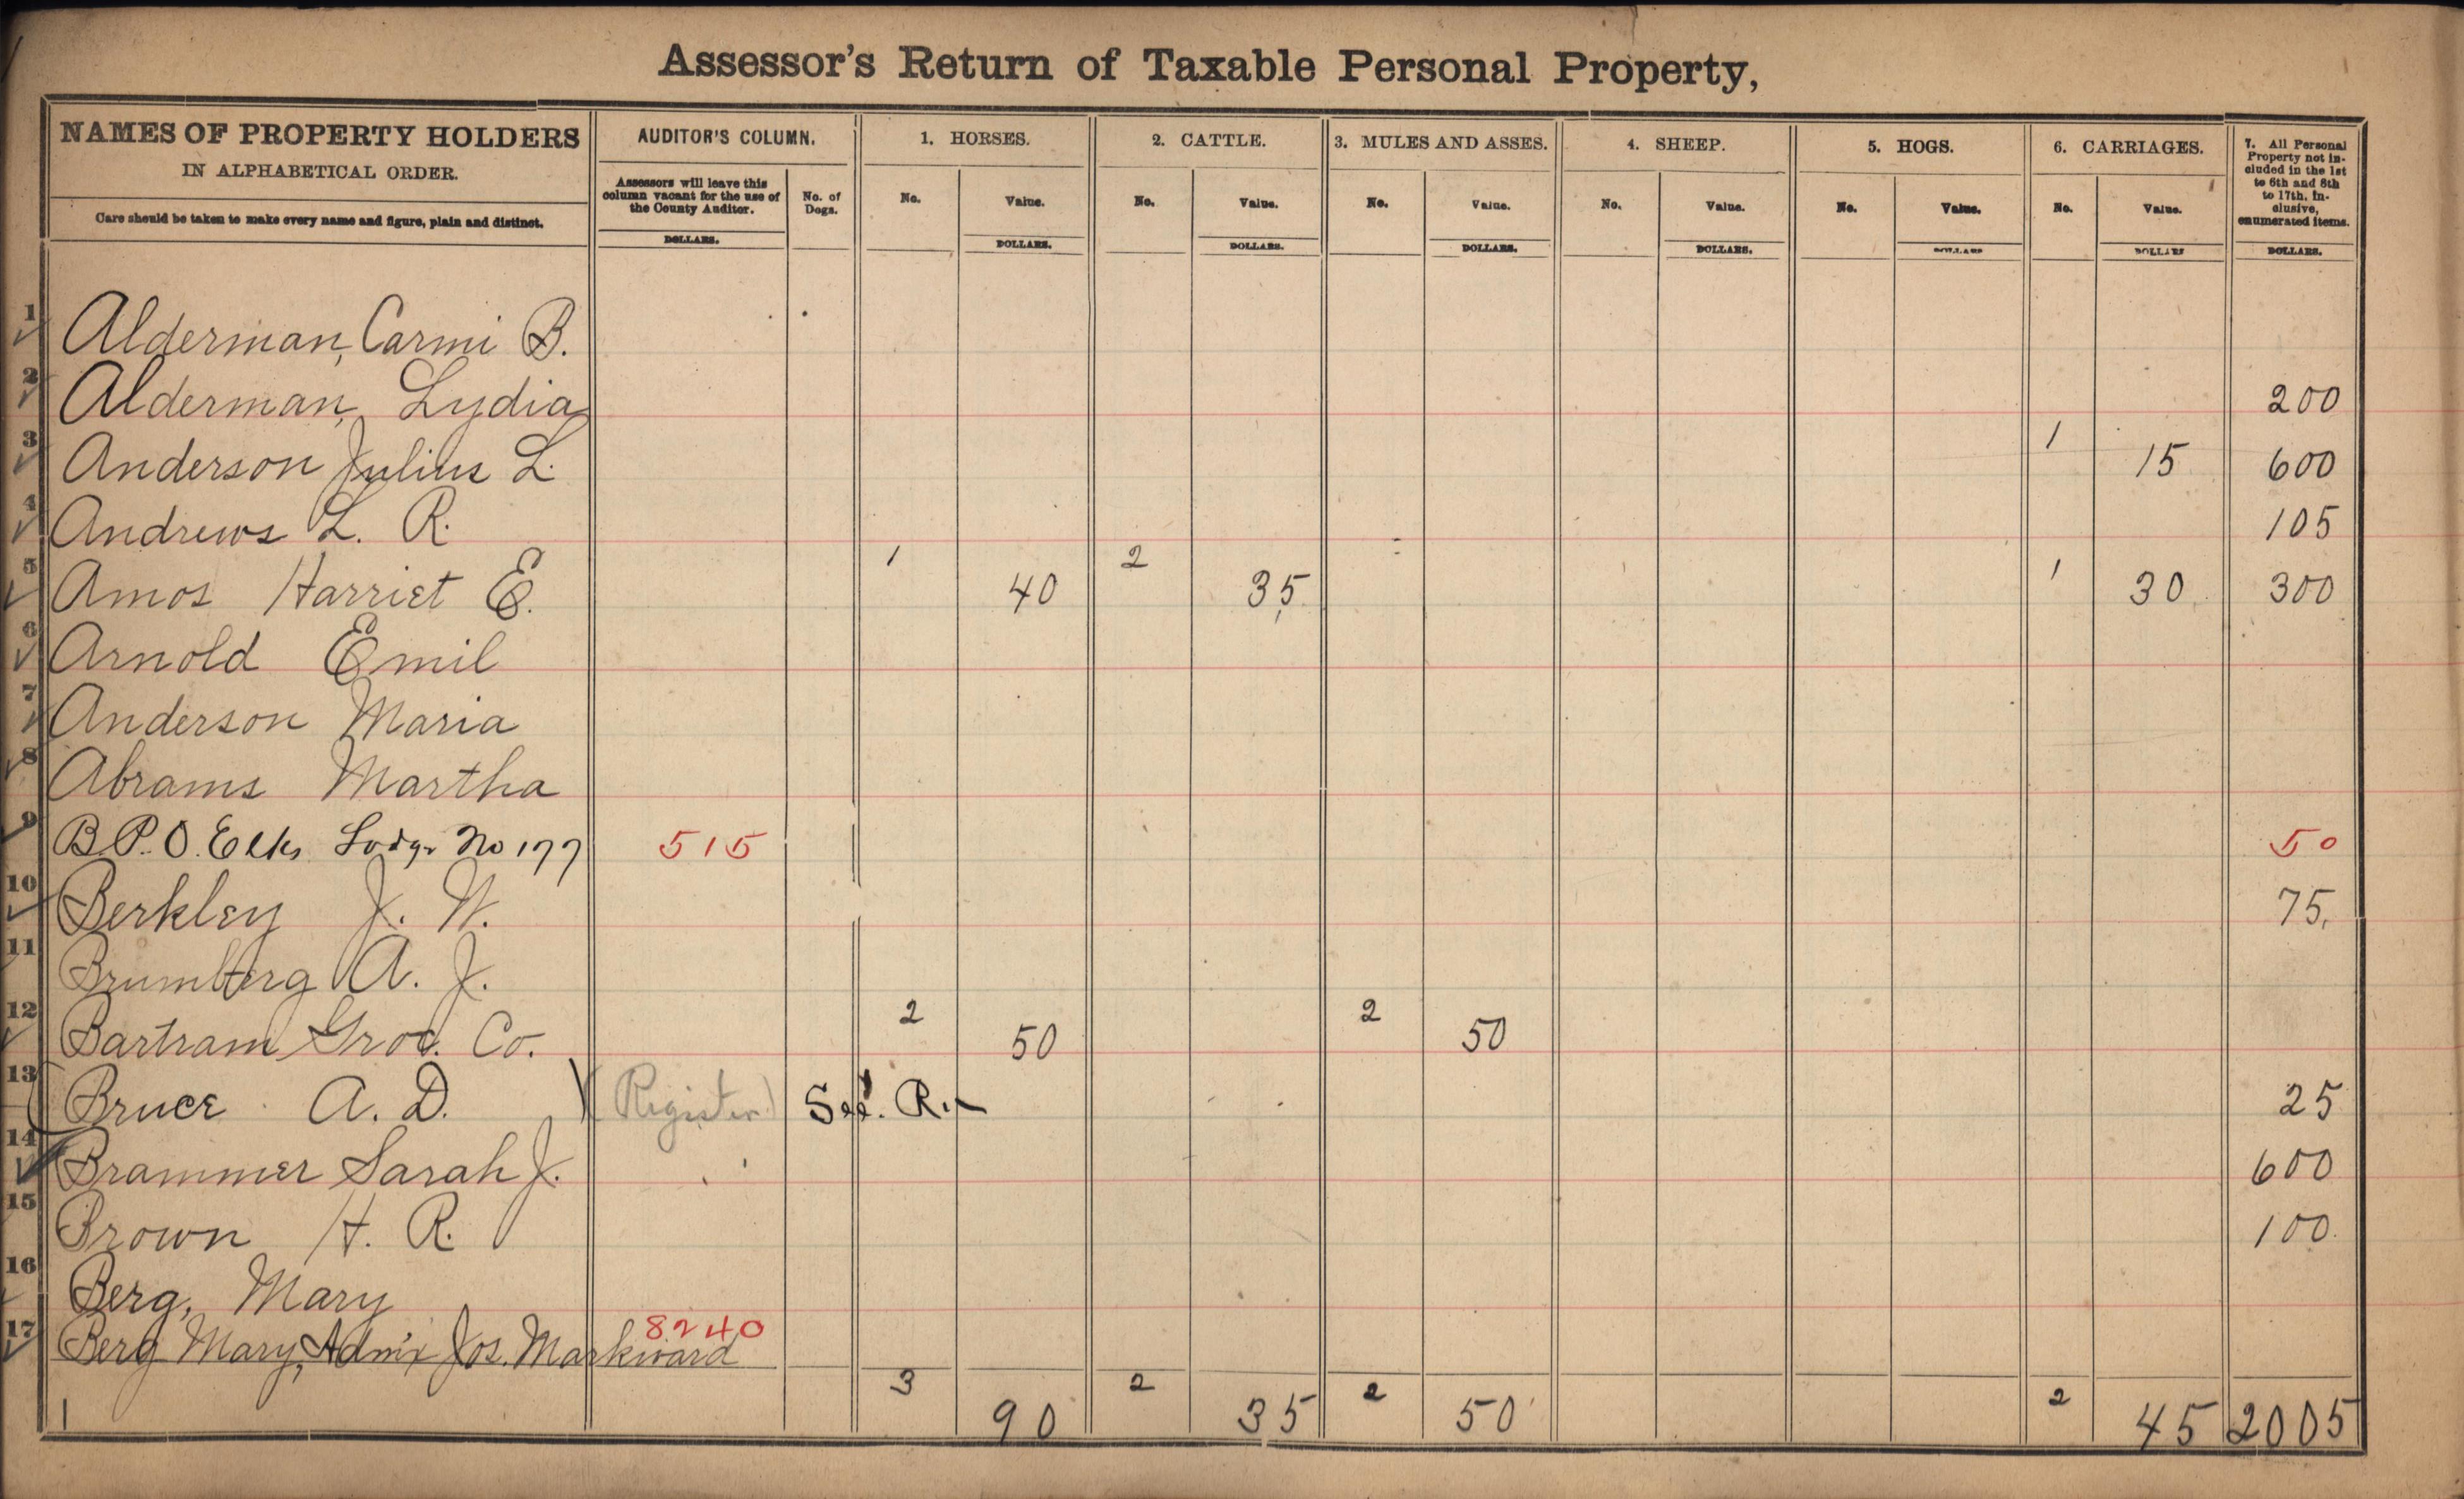 Assessor's Return of Taxable Personal Property,
NAMES OF PROPERTY HOLDERS
IN ALPHABETICAL ORDER.
Care should be taken to make every name and figure, plain and distinct.
AUDITOR'S COLUMN.
Assessors will leave this column vacant for the use of the County Auditor.
DOLLARS.
No. of Dogs.
1. HORSES.
No. Value.
DOLLARS.
2. CATTLE.
No. Value.
DOLLARS.
3. MULES AND ASSES.
No. Value.
DOLLARS.
4. SHEEP.
No. Value.
DOLLARS.
5. HOGS.
No. Value.
DOLLARS
6. CARRIAGES.
No. Value.
DOLLARS
7. All Personal Property not in-
cluded in the 1st
to 6th and 8th
to 17th, in-
clusive,
enumerated items.
DOLLARS.
1 Alderman, Carmi B.
2 Alderman, Lydia 200
3 Anderson Julius L. 1 15 600
4 Andrews L. R. 105
5 Amos Harriet E. 1 40 2 35 1 30 300
6 Arnold Emil
7 Anderson Maria
8 Abrams Martha
9 B. P. O. Elks Lodge No 177 515 50
10 Berkley J. W. 75.
11 Brumberg A. J.
12 Bartram Groc. Co. 2 50 2 50
13 Bruce A. D. (Register) See R. 25
14 Brammer Sarah J. 600
15 Brown H. R. 100
16 Berg, Mary
17 Berg Mary, Adm'x Jos. Markward 8240
3 90 2 35 2 50 2 45 2005